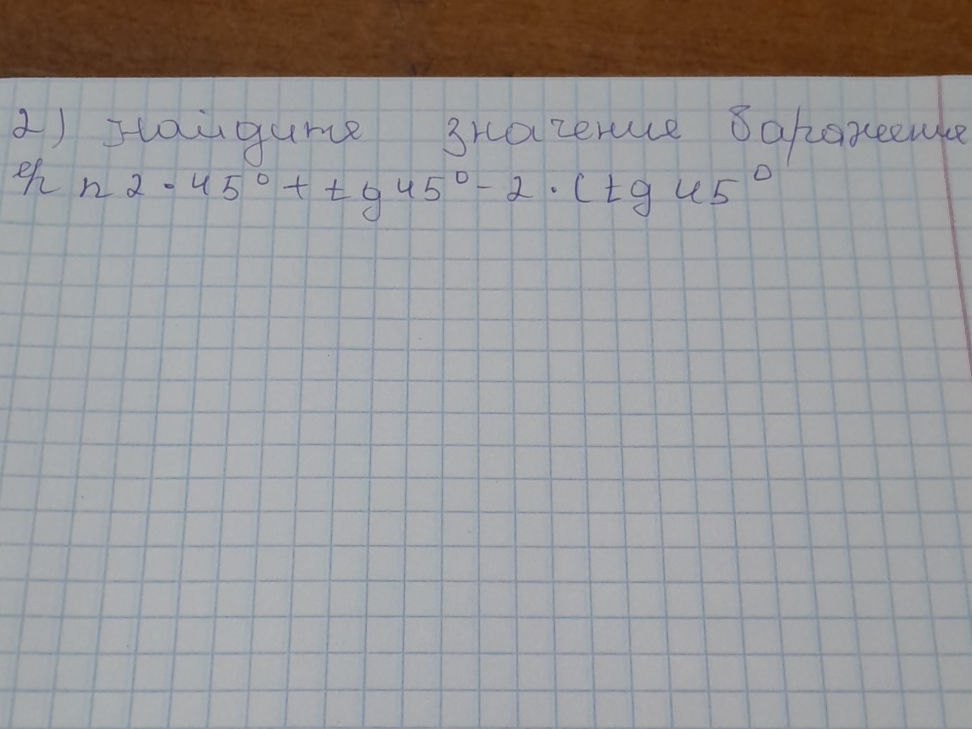 2) Найдите значение варажение
n 2 · 45° + tg 45° - 2 · ctg 45°